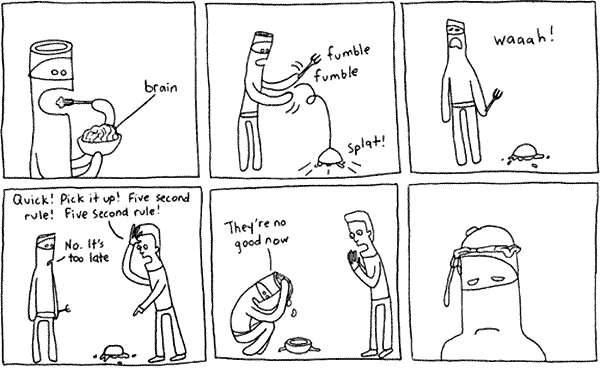 brain
fumble
fumble
splat!
waaah!
Quick! Pick it up! Five second
rule! Five second rule!
No. It's
too late
They're no
good now